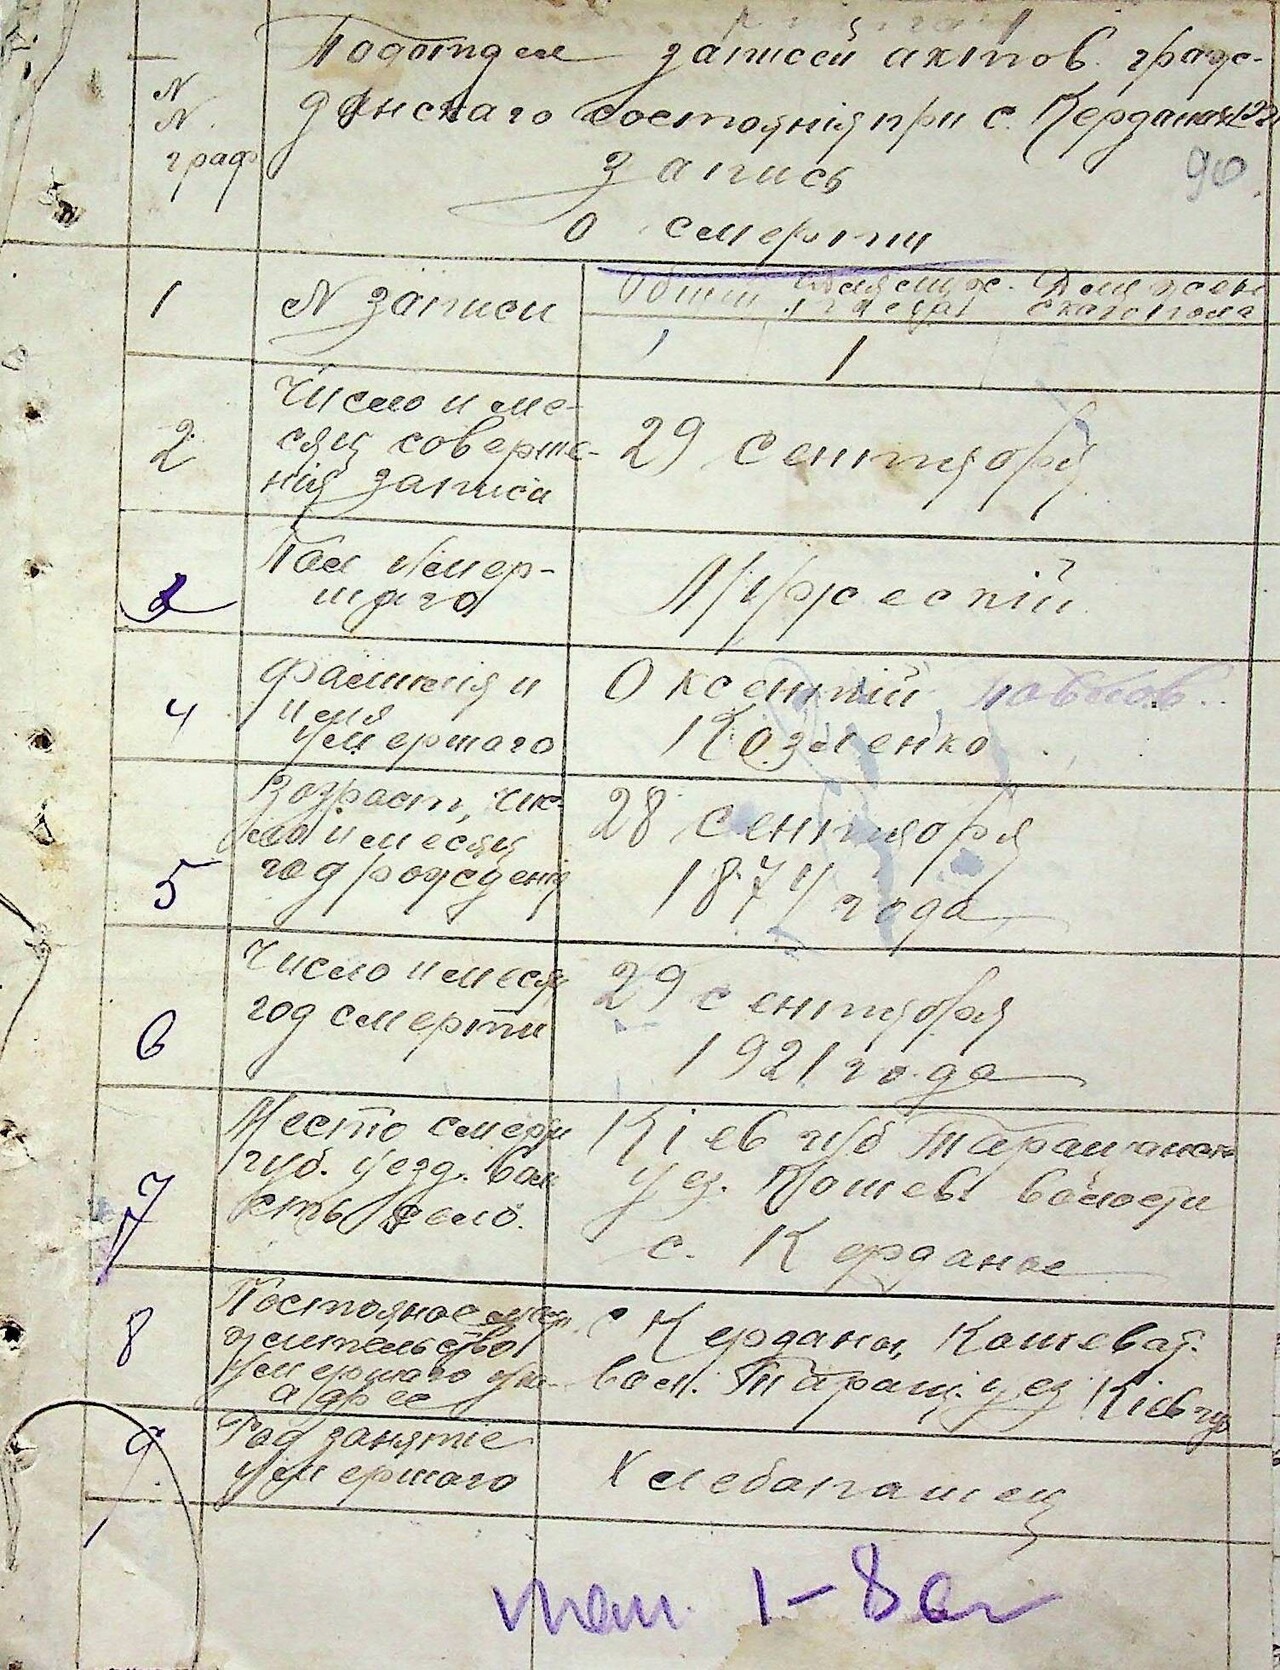 N
N.
граф
Подотдел записей актов граж-
данскаго состоянія при с. Керданах
90
запись
о смерти
1
N записи
Общій Для муж. Для жен
скаго пола
1 1
2
Число и ме-
сяц соверше-
нія записи
29 сентября
3
Пол умер-
шаго
Мужескій
4
Фамилія и
имя
умершаго
Оксентій Павлов.
Козленко
5
Возраст, чис-
ло и месяц
год рожденія
28 сентября
187 года
6
Число и меся
год смерти
29 сентября
1921 года
7
Место смерти
губ. уезд. вол
сть село.
Кіев губ Таращанск
уез. Кошев. волости
с. Кердане
8
Постояное мест
жительство
умершаго
адрес
с Кердани, Кошеват.
вол. Таращ. уез Кіев гу
9
Род занятіе
умершаго
Хлебапашец
1-8